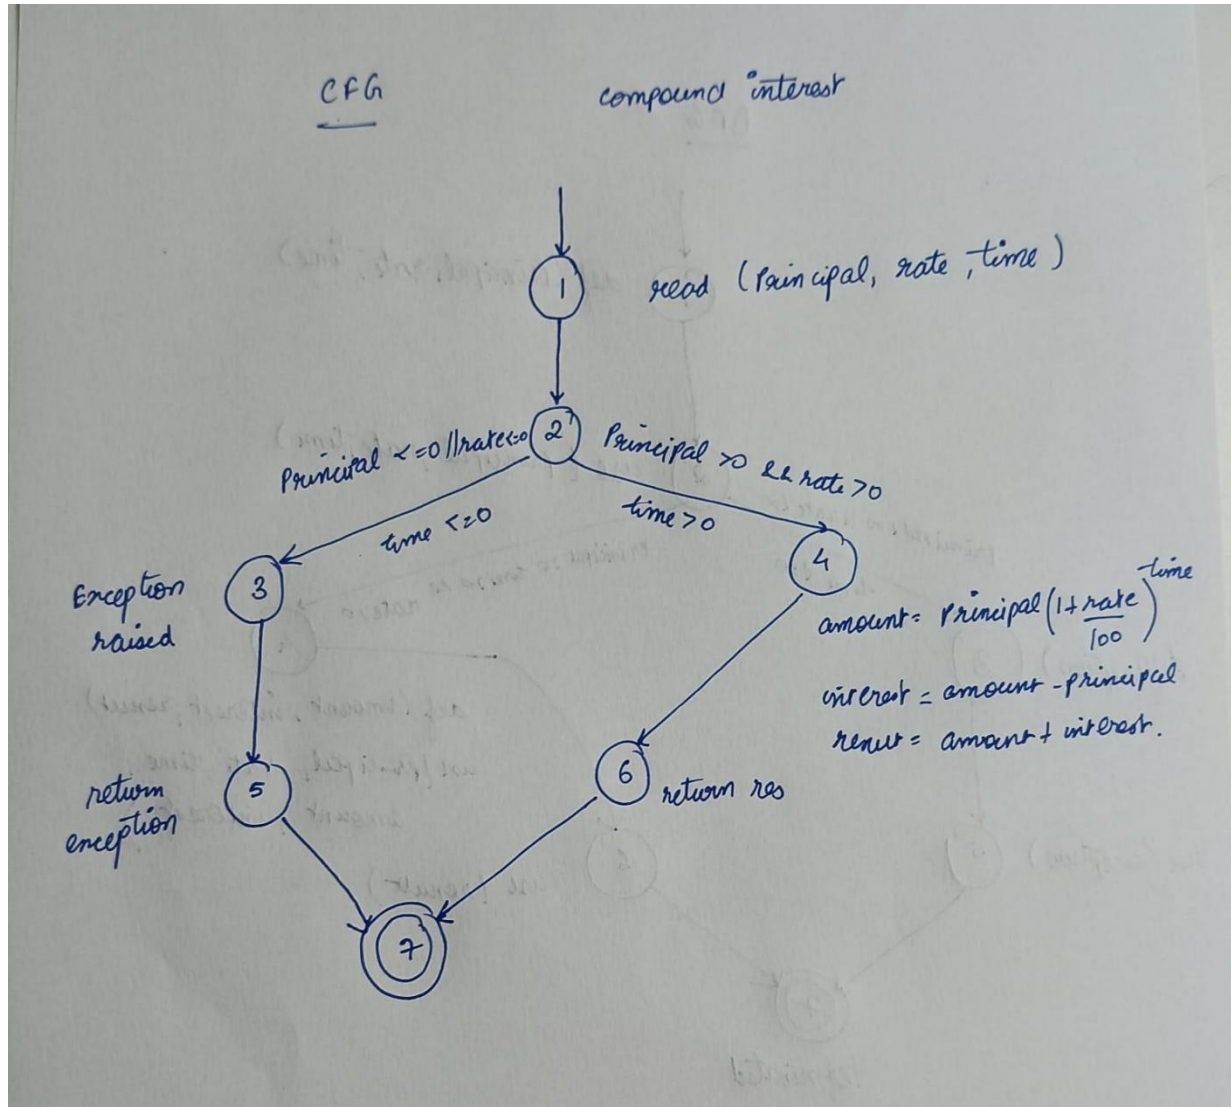 CFG compound interest
1 read (Principal, rate, time)
2
Principal <=0 || rate<=0 Principal >0 && rate >0
time <=0 time >0
3 4
Exception
raised
amount = Principal (1+ rate/100)^time
interest = amount - principal
result = amount + interest.
5 6
return return res
exception
7